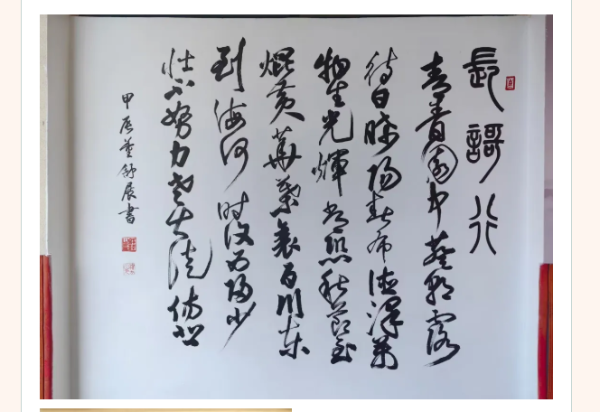 長謌行
青青園中葵朝露
待日晞陽春布德澤萬
物生光輝常恐秋節至
焜黃華葉衰百川東
到海何時復西歸少
壯不努力老大徒傷悲
甲辰董舒書